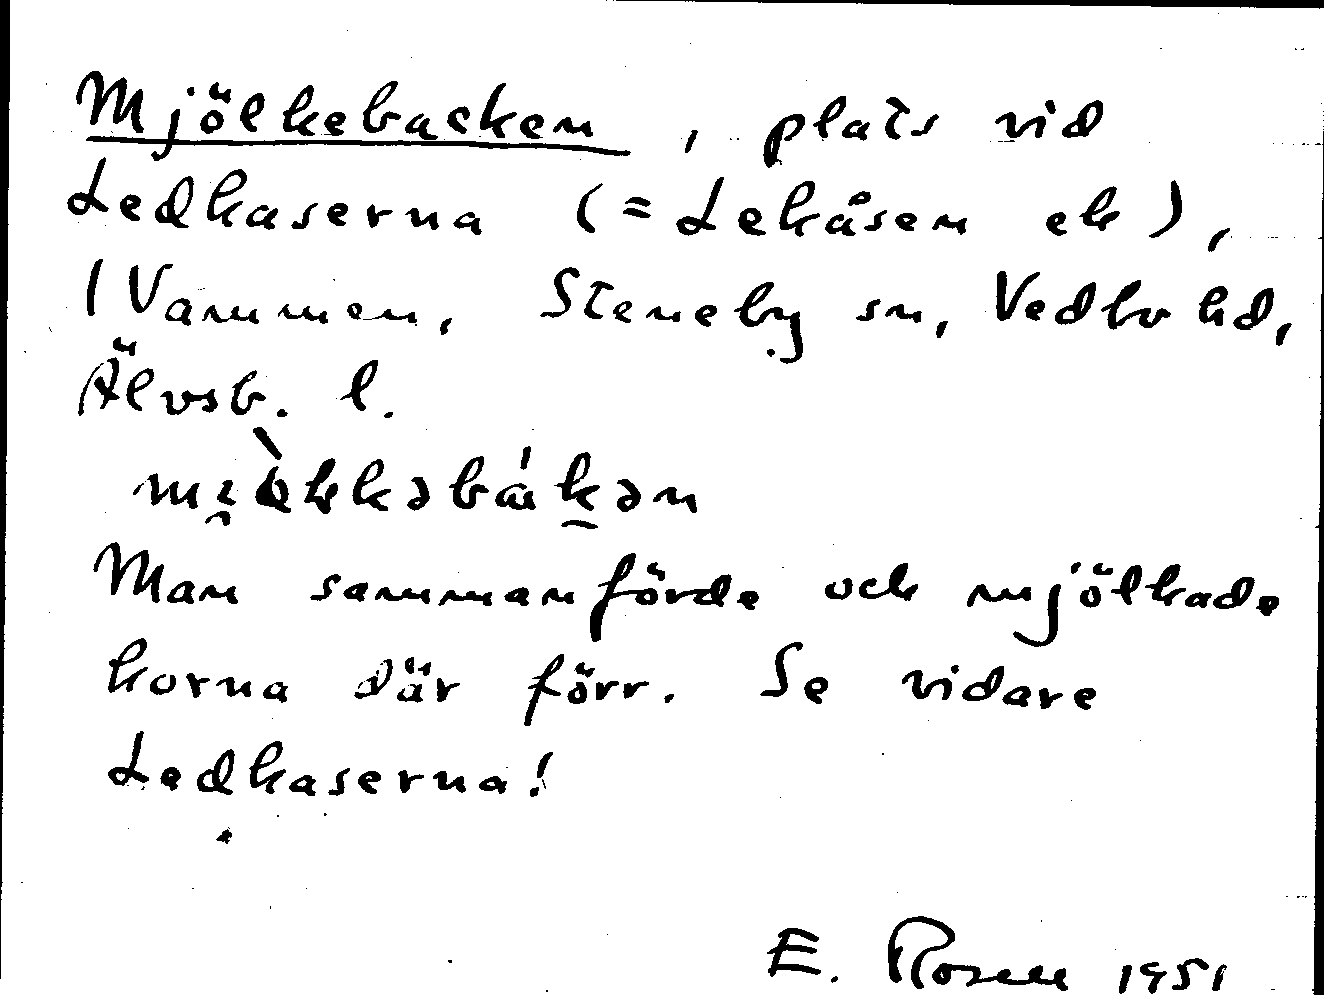 Mjölkebacken, plats vid
Ledkaserna (= Lekåsen ek),
1 Vammen, Steneby sn, Vedbo hd,
Älvsb. l.
Man sammanförde och mjölkade
korna där förr. Se vidare
Ledkaserna!
E. Rosell 1951